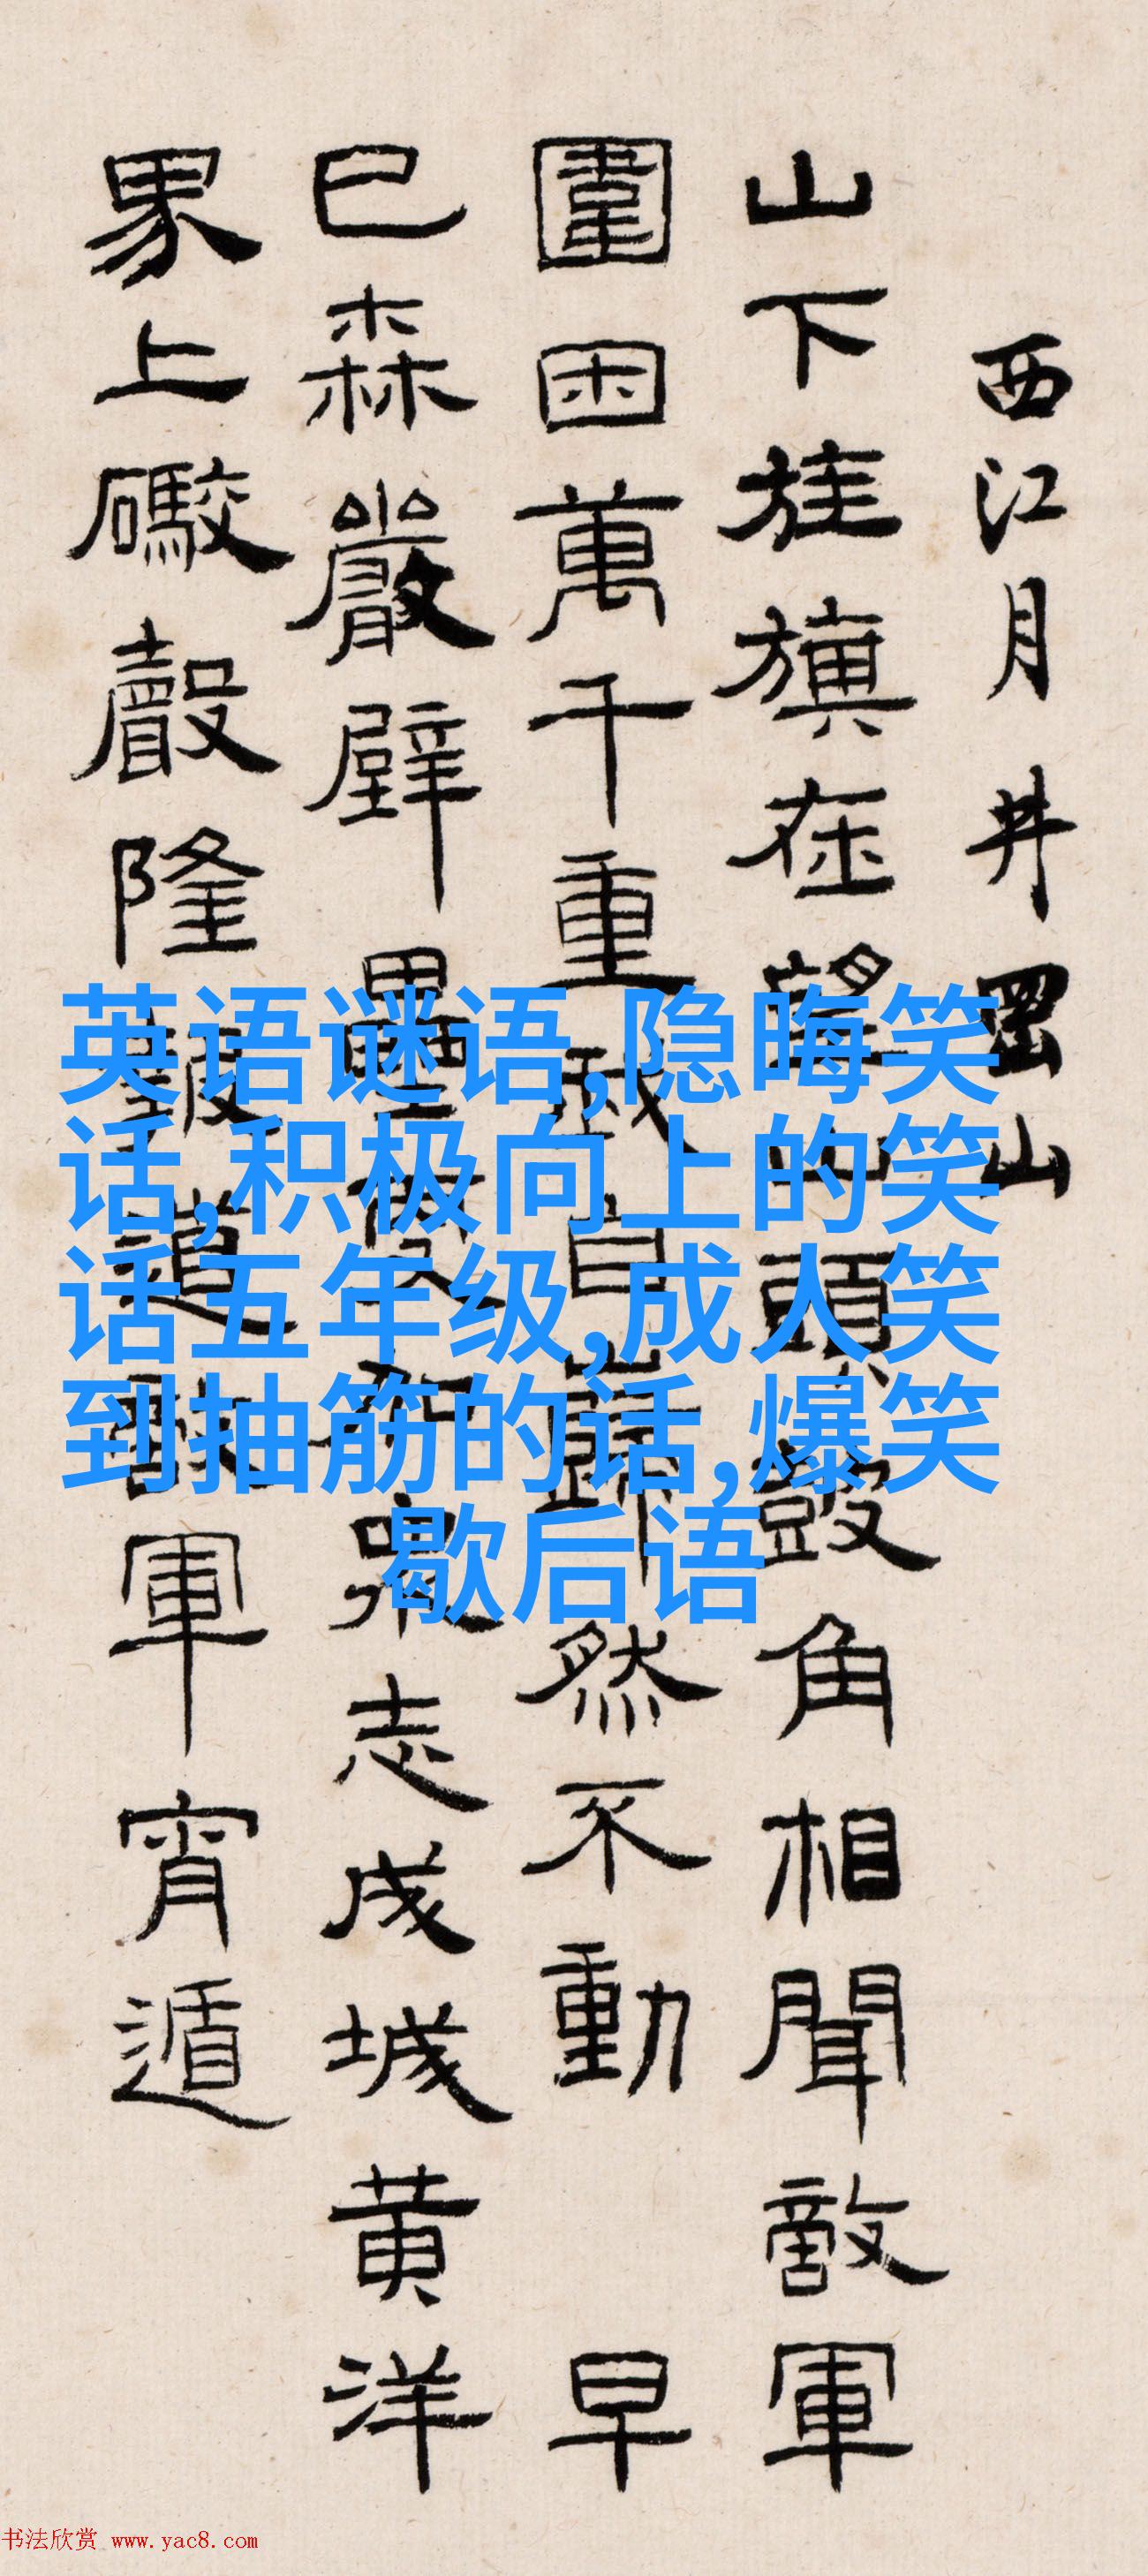 西江月 井岡山
山下旌旗在望山頭鼓角相聞敵軍
圍困萬千重我自巋然不動 早
已森嚴壁壘更加衆志成城黄洋
界上礮聲隆報道敵軍宵遁
英语谜语,隐晦笑
话,积极向上的笑
话五年级,成人笑
到抽筋的话,爆笑
歇后语
书法欣赏 www.yac8.com